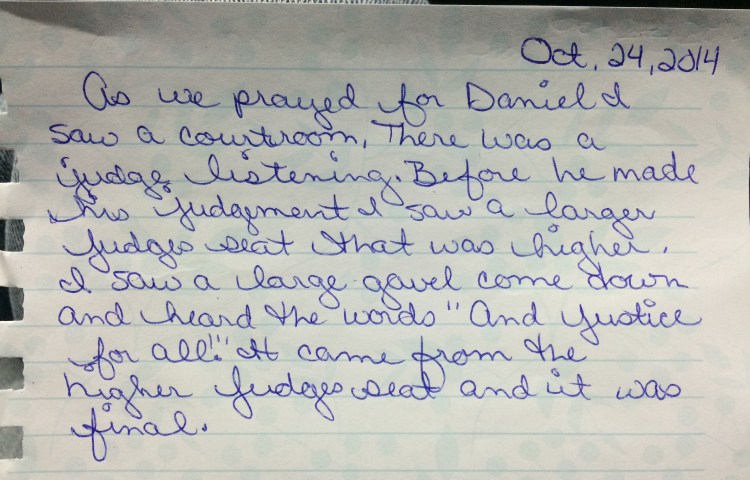 Oct. 24, 2014
As we prayed for Daniel I
saw a courtroom, There was a
judge listening. Before he made
his judgement I saw a larger
judges seat that was higher.
I saw a large gavel come down
and heard the words "And Justice
for all!" It came from the
higher judges seat and it was
final.